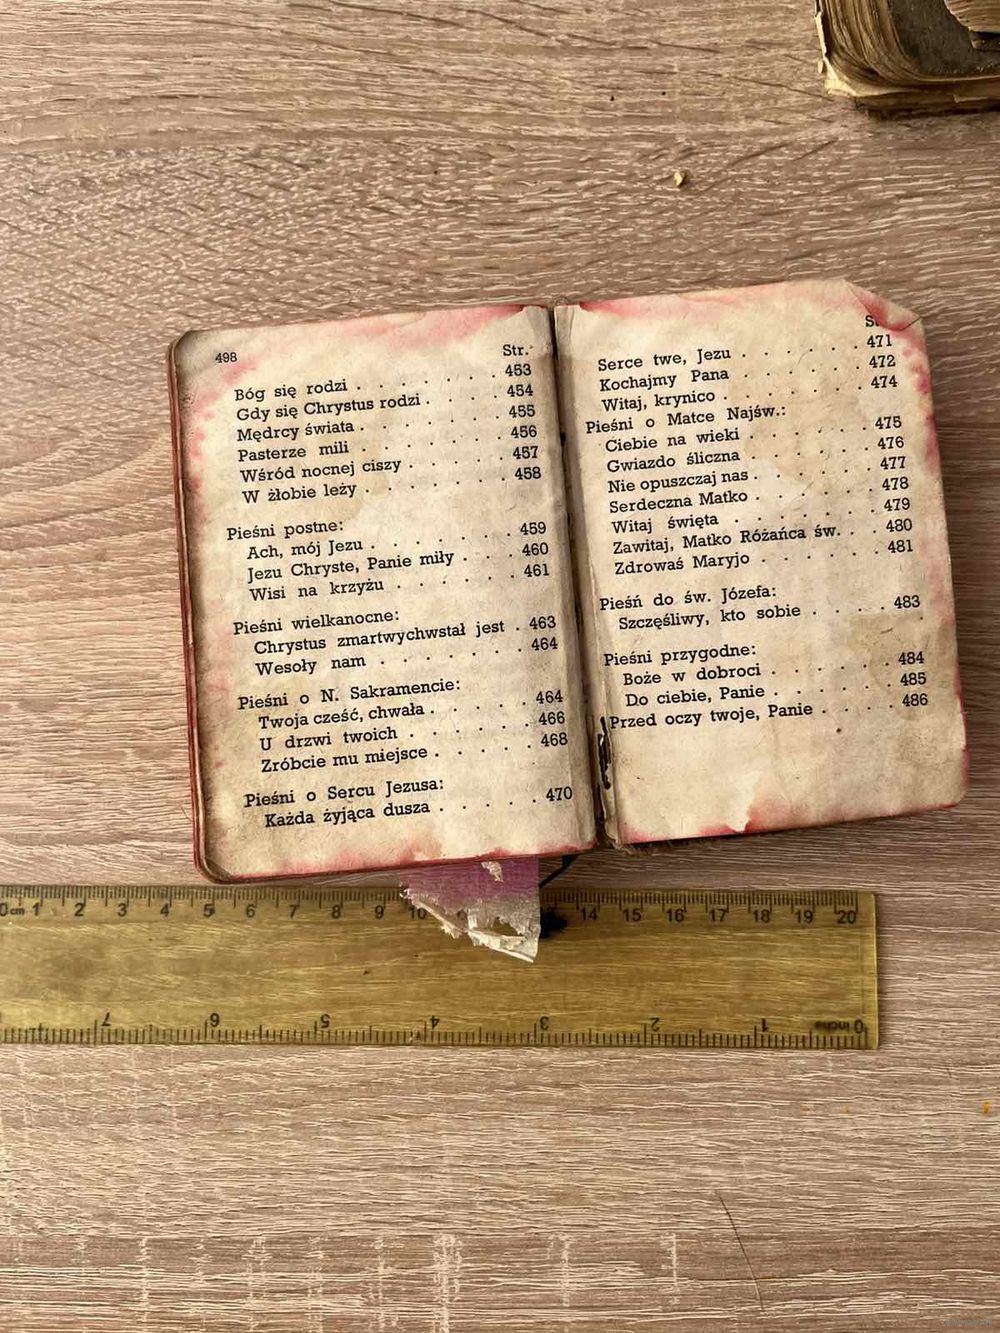 498
Str.
Bóg się rodzi . . . . . . . 453
Gdy się Chrystus rodzi . . . . 454
Mędrcy świata . . . . . . . 455
Pasterze mili . . . . . . . 456
Wśród nocnej ciszy . . . . . 457
W żłobie leży . . . . . . . 458
Pieśni postne:
Ach, mój Jezu . . . . . . . 459
Jezu Chryste, Panie miły . . . 460
Wisi na krzyżu . . . . . . 461
Pieśni wielkanocne:
Chrystus zmartwychwstał jest . 463
Wesoły nam . . . . . . . 464
Pieśni o N. Sakramencie:
Twoja cześć, chwała . . . . . 464
U drzwi twoich . . . . . . 466
Zróbcie mu miejsce . . . . . 468
Pieśni o Sercu Jezusa:
Każda żyjąca dusza . . . . . 470
Serce twe, Jezu . . . . . . 471
Kochajmy Pana . . . . . . 472
Witaj, krynico . . . . . . . 474
Pieśni o Matce Najśw.:
Ciebie na wieki . . . . . . 475
Gwiazdo śliczna . . . . . . 476
Nie opuszczaj nas . . . . . . 477
Serdeczna Matko . . . . . . 478
Witaj święta . . . . . . . 479
Zawitaj, Matko Różańca św. . . 480
Zdrowaś Maryjo . . . . . . 481
Pieśń do św. Józefa:
Szczęśliwy, kto sobie . . . . . 483
Pieśni przygodne:
Boże w dobroci . . . . . . 484
Do ciebie, Panie . . . . . . 485
Przed oczy twoje, Panie . . . . 486
0 cm 1 2 3 4 5 6 7 8 9 10 14 15 16 17 18 19 20
7 6 5 4 3 2 1 0 inche